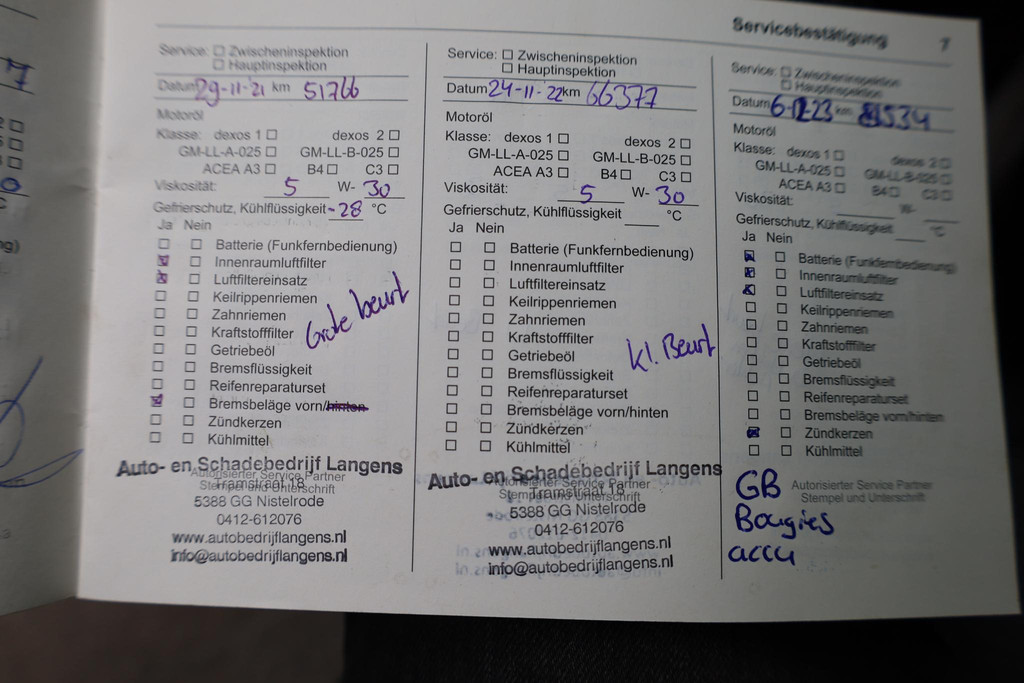 Servicebestätigung 7
Service: ☐ Zwischeninspektion
☐ Hauptinspektion
Datum 29-11-'21 km 51766
Motoröl
Klasse: dexos 1 ☐ dexos 2 ☐
GM-LL-A-025 ☐ GM-LL-B-025 ☐
ACEA A3 ☐ B4 ☐ C3 ☐
Viskosität: 5 W- 30
Gefrierschutz, Kühlflüssigkeit -28 °C
Ja Nein
☐ ☐ Batterie (Funkfernbedienung)
☒ ☐ Innenraumluftfilter
☒ ☐ Luftfiltereinsatz
☐ ☐ Keilrippenriemen
☐ ☐ Zahnriemen
☐ ☐ Kraftstofffilter
☐ ☐ Getriebeöl
☐ ☐ Bremsflüssigkeit
☐ ☐ Reifenreparaturset
☒ ☐ Bremsbeläge vorn/hinten
☐ ☐ Zündkerzen
☐ ☐ Kühlmittel
Grote beurt
Autorisierter Service Partner
Stempel und Unterschrift
Auto- en Schadebedrijf Langens
Tramstraat 18
5388 GG Nistelrode
0412-612076
www.autobedrijflangens.nl
info@autobedrijflangens.nl
Service: ☐ Zwischeninspektion
☐ Hauptinspektion
Datum 24-11-'22 km 66377
Motoröl
Klasse: dexos 1 ☐ dexos 2 ☐
GM-LL-A-025 ☐ GM-LL-B-025 ☐
ACEA A3 ☐ B4 ☐ C3 ☐
Viskosität: 5 W- 30
Gefrierschutz, Kühlflüssigkeit °C
Ja Nein
☐ ☐ Batterie (Funkfernbedienung)
☐ ☐ Innenraumluftfilter
☐ ☐ Luftfiltereinsatz
☐ ☐ Keilrippenriemen
☐ ☐ Zahnriemen
☐ ☐ Kraftstofffilter
☐ ☐ Getriebeöl
☐ ☐ Bremsflüssigkeit
☐ ☐ Reifenreparaturset
☐ ☐ Bremsbeläge vorn/hinten
☐ ☐ Zündkerzen
☐ ☐ Kühlmittel
kl. Beurt
Autorisierter Service Partner
Stempel und Unterschrift
Auto- en Schadebedrijf Langens
Tramstraat 18
5388 GG Nistelrode
0412-612076
www.autobedrijflangens.nl
info@autobedrijflangens.nl
Service: ☐ Zwischeninspektion
☐ Hauptinspektion
Datum 6-12-23 km 81534
Motoröl
Klasse: dexos 1 ☐ dexos 2 ☐
GM-LL-A-025 ☐ GM-LL-B-025 ☐
ACEA A3 ☐ B4 ☐ C3 ☐
Viskosität: W-
Gefrierschutz, Kühlflüssigkeit °C
Ja Nein
☒ ☐ Batterie (Funkfernbedienung)
☒ ☐ Innenraumluftfilter
☒ ☐ Luftfiltereinsatz
☐ ☐ Keilrippenriemen
☐ ☐ Zahnriemen
☐ ☐ Kraftstofffilter
☐ ☐ Getriebeöl
☐ ☐ Bremsflüssigkeit
☐ ☐ Reifenreparaturset
☐ ☐ Bremsbeläge vorn/hinten
☒ ☐ Zündkerzen
☐ ☐ Kühlmittel
Autorisierter Service Partner
Stempel und Unterschrift
GB
Bougies
accu